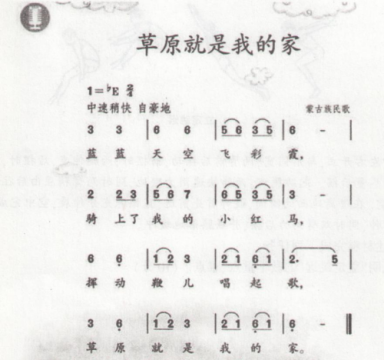 草原就是我的家
1=♭E 2/4
中速稍快 自豪地 蒙古族民歌
3 3 | 6 6 | 5 6 3 5 | 6 - |
蓝 蓝 天 空 飞 彩 霞,
2 2 3 | 5 6 1 | 6 5 3 5 | 3 - |
骑 上了 我 的 小 红 马,
6 6 | 1 2 3 | 2 1 6 1 | 2· 5 |
挥 动 鞭 儿 唱 起 歌,
3 6 | 1 2 3 | 2 1 6 1 | 6 - ‖
草 原 就 是 我 的 家。